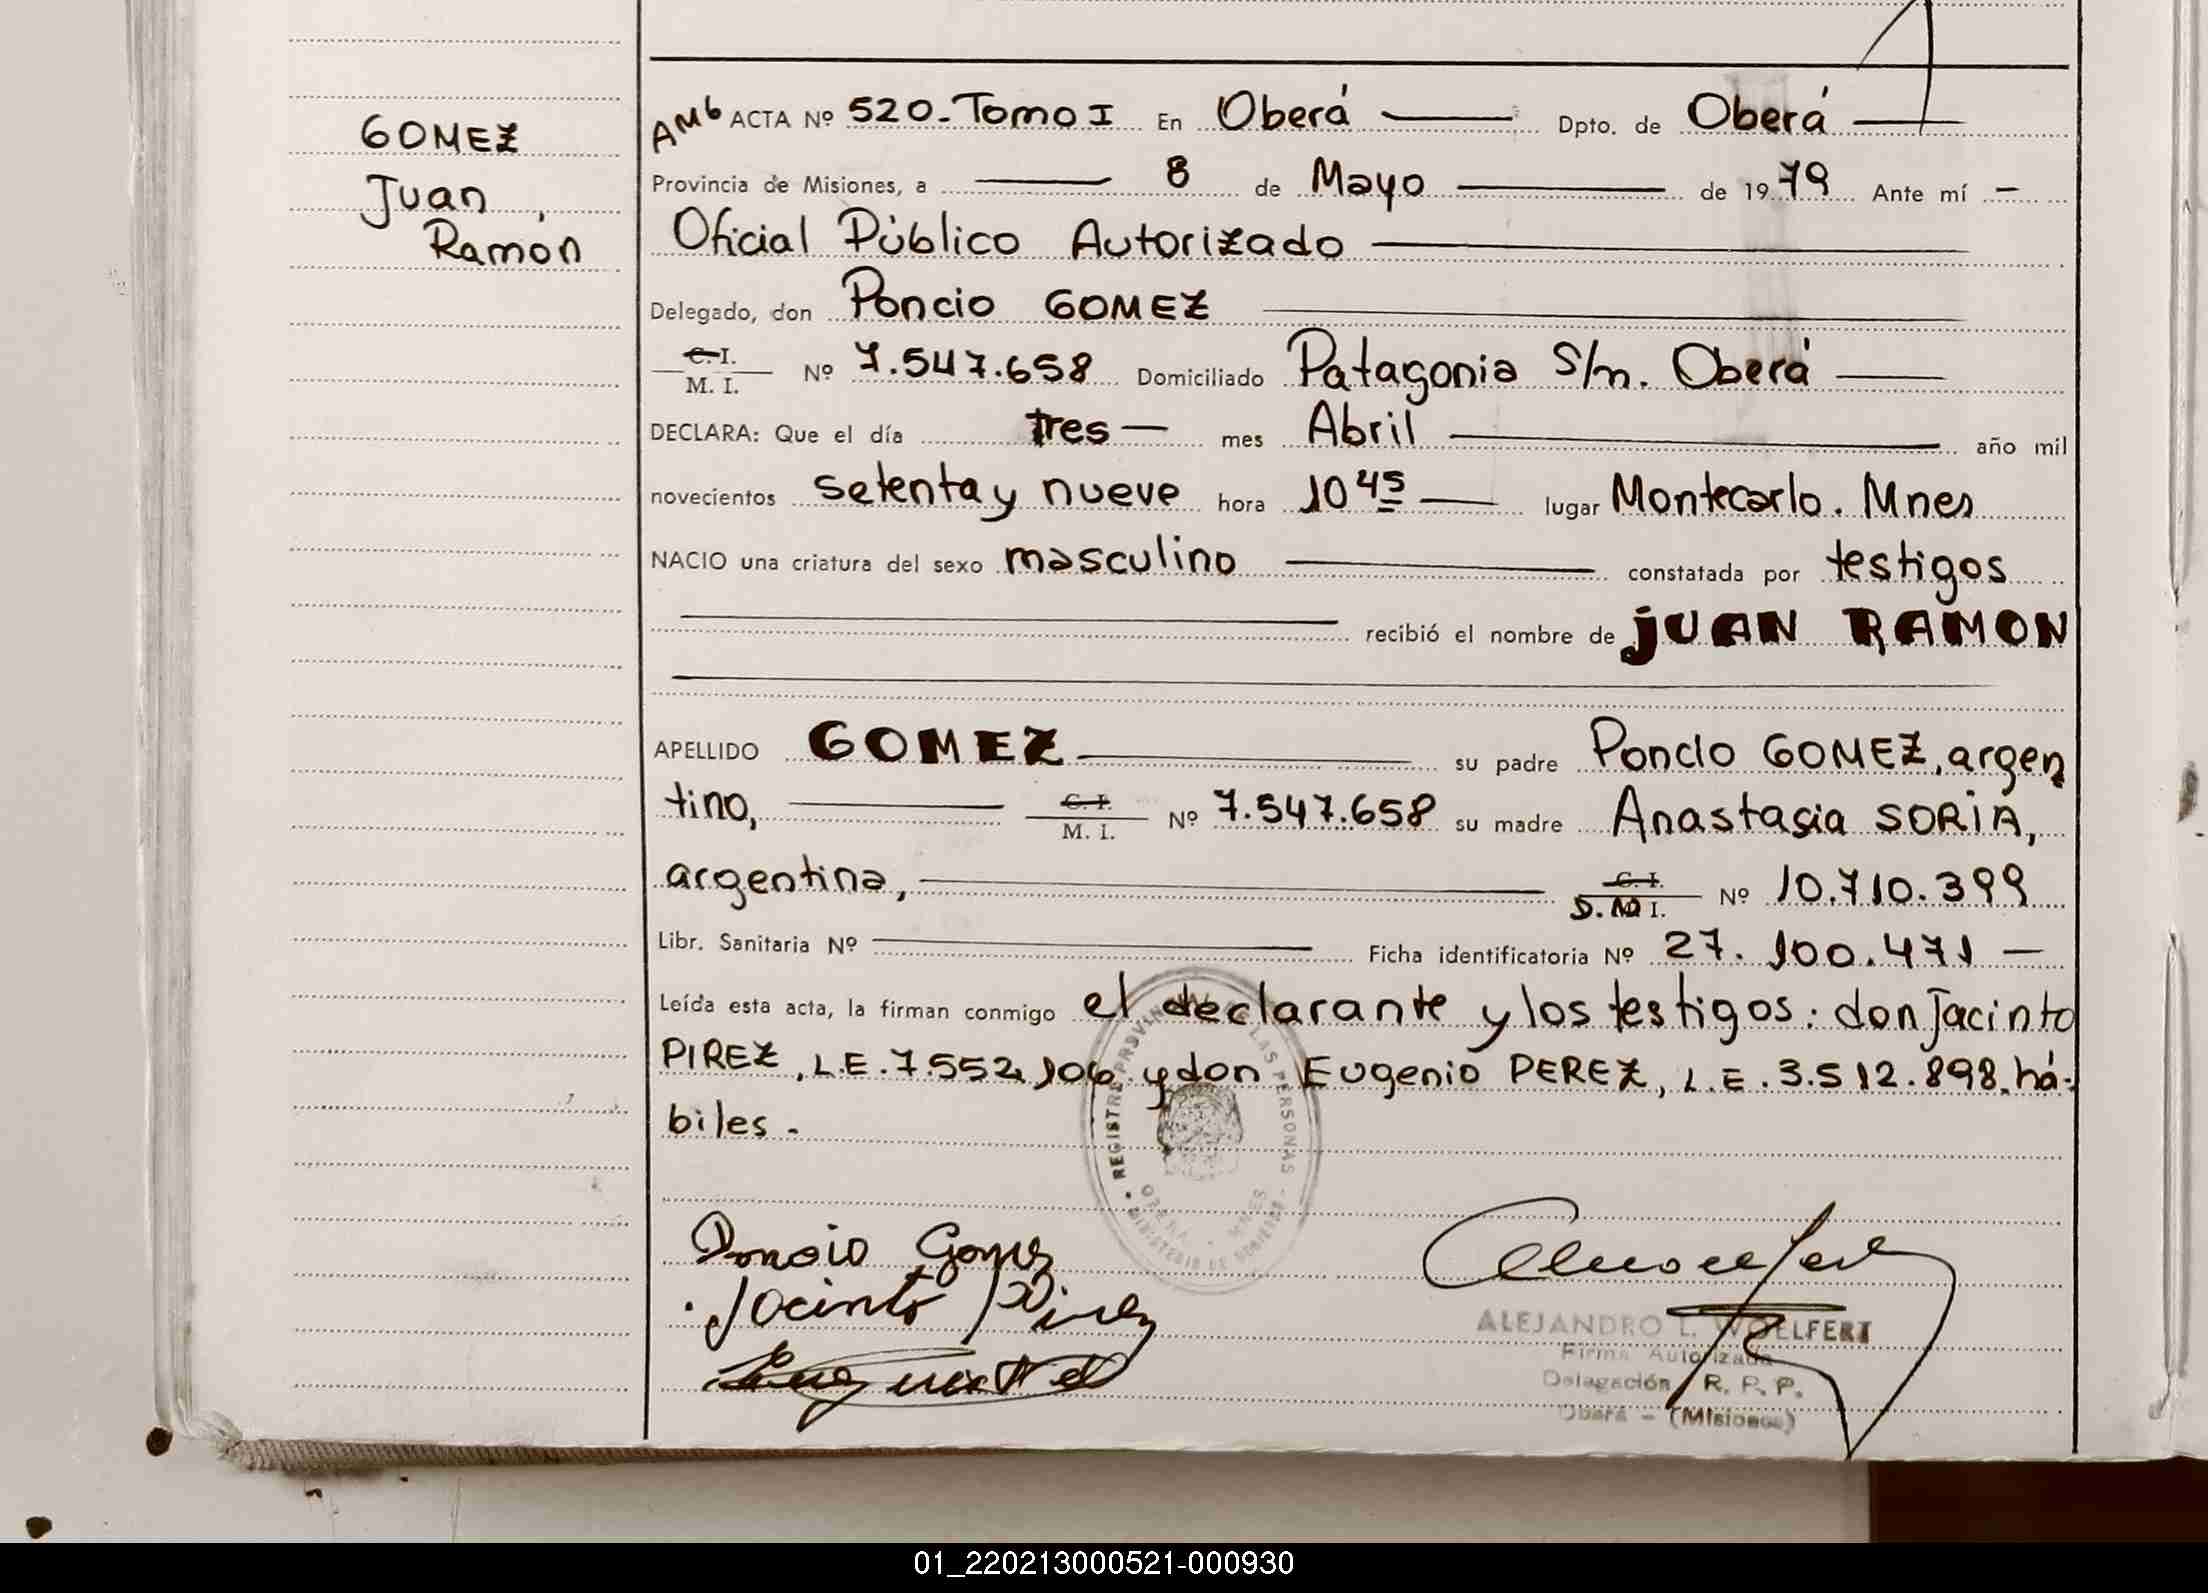 GOMEZ
Juan
Ramón
AMb ACTA Nº 520-Tomo I En Oberá Dpto. de Oberá
Provincia de Misiones, a 8 de Mayo de 1979 Ante mí
Oficial Público Autorizado
Delegado, don Poncio GOMEZ
C. I.
M. I. Nº 7.547.658 Domiciliado Patagonia S/n. Oberá
DECLARA: Que el día tres mes Abril año mil
novecientos setenta y nueve hora 10 45 lugar Montecarlo. Mnes
NACIO una criatura del sexo masculino constatada por testigos
recibió el nombre de JUAN RAMON
APELLIDO GOMEZ su padre Poncio GOMEZ, argen
tino, C. I. M. I. Nº 7.547.658 su madre Anastasia SORIA,
argentina, C. I. D.N I. Nº 10.710.399
Libr. Sanitaria Nº Ficha identificatoria Nº 27.100.471
Leída esta acta, la firman conmigo el declarante y los testigos: don Jacinto
PIREZ, L.E. 7.552.106 y don Eugenio PEREZ, L.E. 3.512.898, há-
biles.
REGISTRO PROVINCIAL DE LAS PERSONAS
OBERA - MNES
MINISTERIO DE GOBIERNO
Poncio Gomez
Jacinto Pirez
ALEJANDRO L. WOELFERT
Firma Autorizada
Delegación R. P. P.
Oberá - (Misiones)
01_220213000521-000930